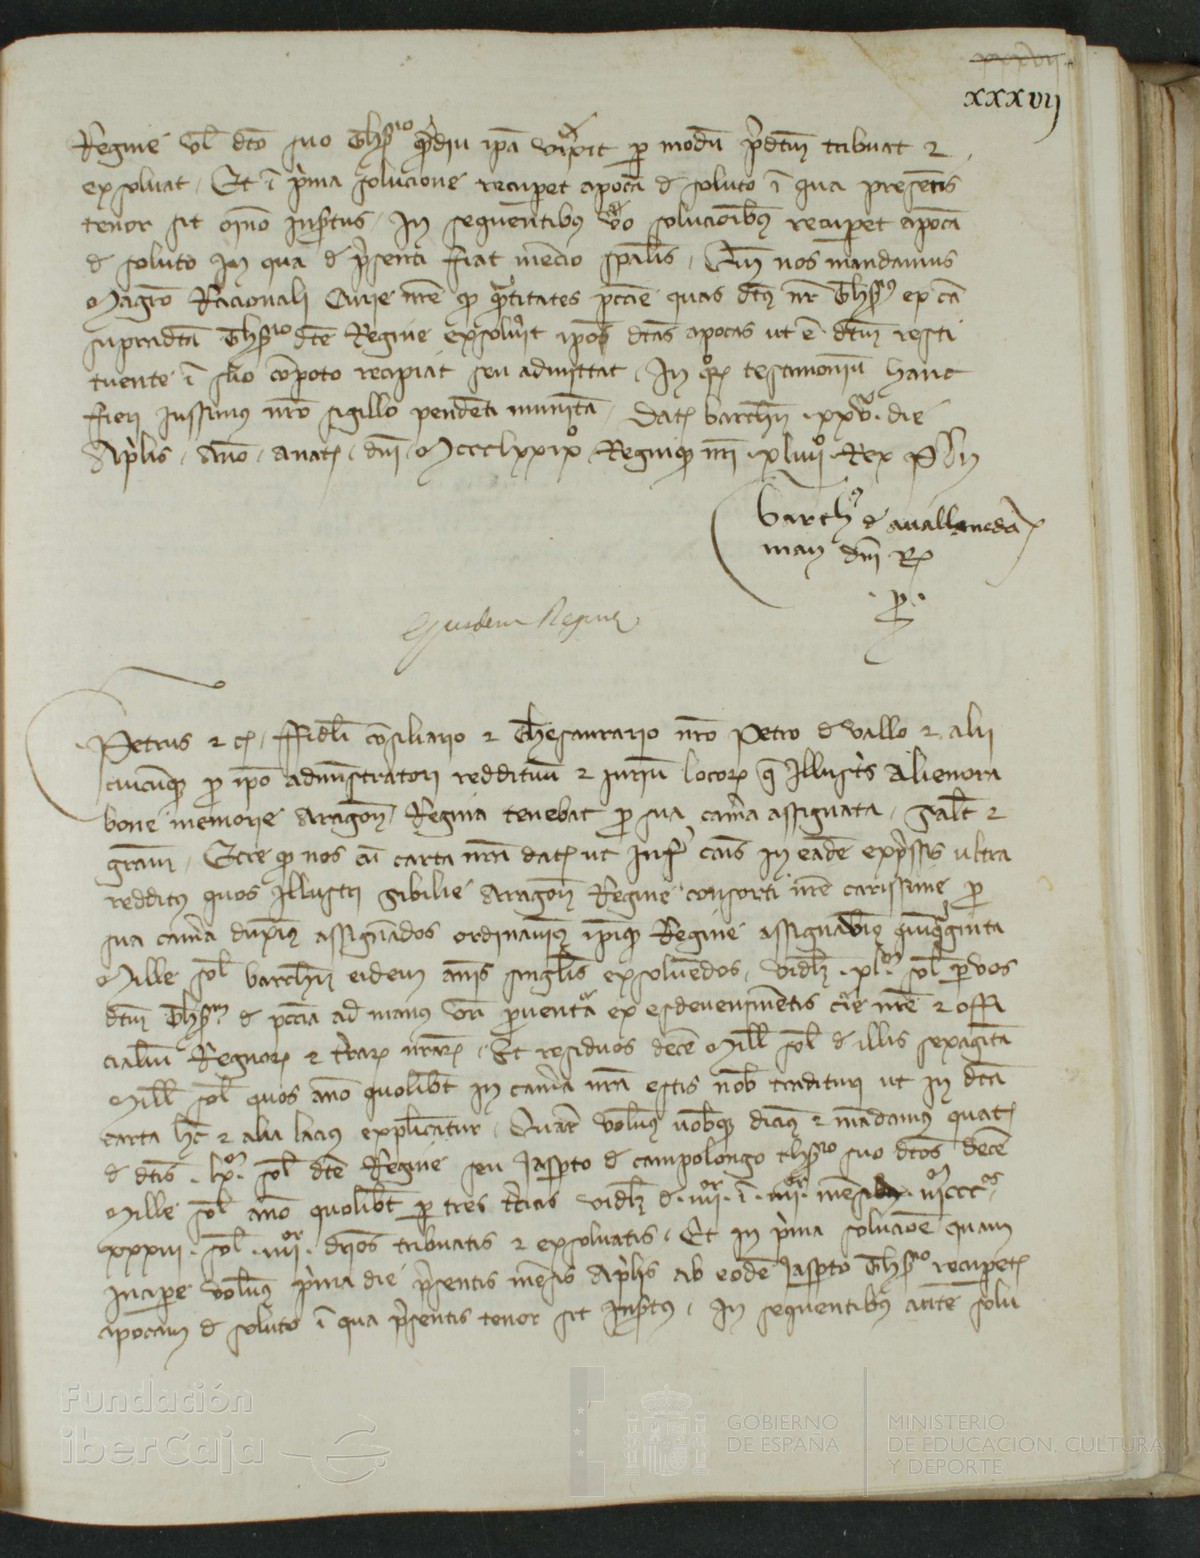 xxxvii
xxxvii
Regine vel dco suo Thesro ipa vixit per modu predictum tribuat et
exsolvat. Et i prima solucione recuperet apocha de soluto i qua presentis
tenor sit omno insertus. In sequentibus vero solucionibus recuperet apoca
de soluto in qua de presenti fiat mencio spalis. Cum nos mandamus
Magro Racionali Curie nre qd quantitates peccunie quas dcus nr Thes ex ca
supradcta Thesro dce Regine exsolverit ipo dictas apocas ut e dictum resti
tuente i suo compoto recipiat seu admittat. In quor testimonium hanc
fieri jussimus nro sigillo pendenti munita. Dat barchn .xxv. die
Aprilis. Ano. anat. dni. Mcccclxxix Regnique nri .xliiii. Rex P
barth de avallaneda
man dni R
.p.
Ejusdem Regine
Petrus et c. ffideli consiliario et Thesaurario nro Petro de Vallo et alii
cuicumque per ipo administratori reddituum et jurium locor que Illustris Alienora
bone memorie Aragon Regina tenebat per sua camera assignata. Salt et
gram. Scire quod nos cu carta nra dat ut infra cais in eade expressis ultra
redditus quos Illustri Sibilie Aragon Regine consorti nre carissime pro
sua camera duximus assignados ordinavimus ipique Regine assignavimus quinquaginta
Mille sol barchn eidem anis singulis exsolvedos. videlz .xl. sol per vos
dcum Thes de pccia ad manus vri proventa ex esdevenimentis curie nre et offi
cialium Regnor et terrar nrar. Et residuos dece Mill sol de illis sexaginta
Mill sol quos ano quolibet in camera nra estis nob tradituri ut in dca
carta hec et alia lacius explicatur. Quare volumus vobisque dicimus et mandamus quat
de dictis .lx. sol dce Regine seu Jasperto de campolongo thesro suo dictos dece
Mille sol ano quolibet per tres tercias videlz de .iiii. i .iiii. mensib .iiicccos
xxxiii. sol .iiii. drios tribuatis et exsolvatis. Et in prima solucioe quam
incipere volumus prima die presentis mensis Aprilis ab eode Jasperto Thesro recuperet
apocam de soluto i qua presentis tenor sit insertus. In sequentibus aute solu
Fundación
iberCaja
GOBIERNO
DE ESPAÑA
MINISTERIO
DE EDUCACIÓN, CULTURA
Y DEPORTE